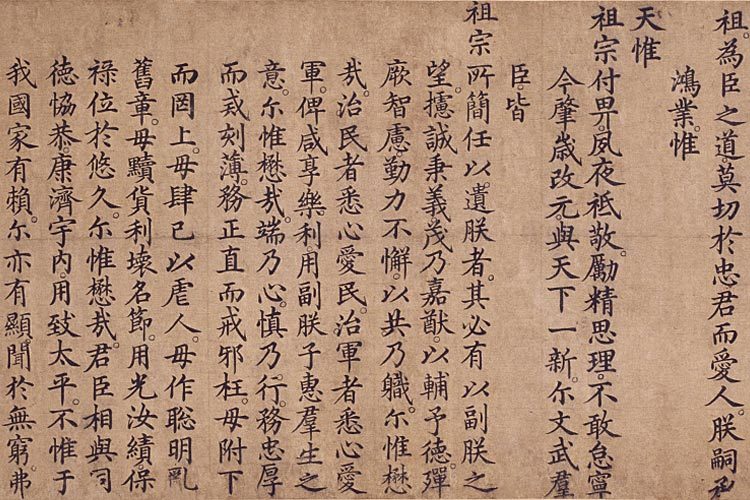 祖。為臣之道。莫切於忠君而愛人。朕嗣
鴻業。惟
天惟
祖宗付畀。夙夜祗敬。勵精思理。不敢怠寧
今肇歲改元。與天下一新。尓文武羣
臣。皆
祖宗所簡任以遺朕者。其必有以副朕之
望。攄誠秉義。茂乃嘉猷。以輔予德。殫
厥智慮。勤力不懈。以共乃職。尓惟懋
哉。治民者悉心愛民。治軍者悉心愛
軍。俾咸享樂利。用副朕子惠羣生之
意。尓惟懋哉。端乃心。慎乃行。務忠厚
而戒刻薄。務正直而戒邪枉。毋附下
而罔上。毋肆己以虐人。毋作聰明亂
舊章。毋黷貨利壞名節。用光汝績。保
祿位於悠久。尓惟懋哉。君臣相與。同
德恊恭。康濟宇內。用致太平。不惟于
我國家有賴。尓亦有顯聞於無窮。弗